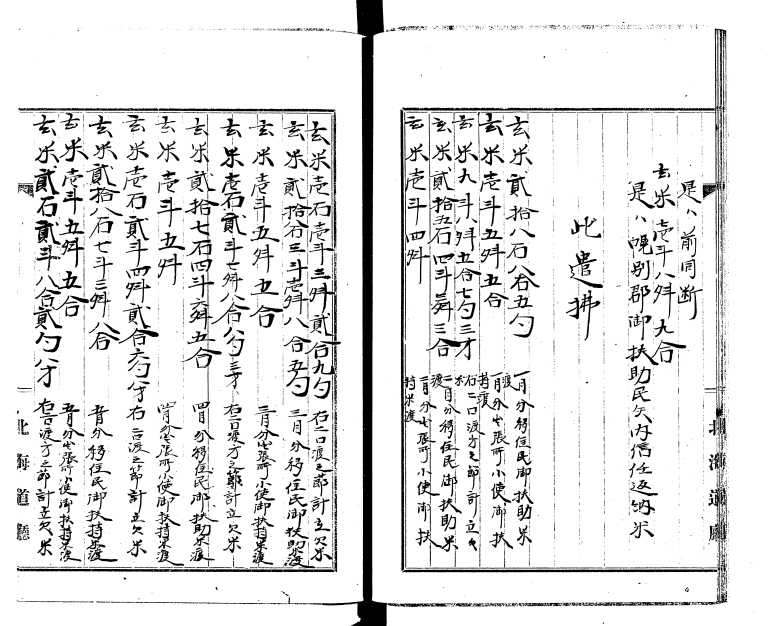 是ハ前同断
玄米壱斗八舛九合
是ハ幌別郡御扶助民矢内信任返納米
此遣払
玄米貳拾八石八舛五勺 一月分移住民御扶助米渡
玄米壱斗五舛五合 一月分出張所小使御扶持米渡
玄米九斗八舛五合七勺三才 右二口渡方之節計立欠米
玄米貳拾五石四斗三舛三合 二月分移住民御扶助米渡
玄米壱斗四舛 二月分出張所小使御扶持米渡
北海道廳
玄米壱石壱斗三舛貳合九勺 右二口渡之節計立欠米
玄米貳拾石三斗壱舛八合五勺 三月分移住民御扶助米渡
玄米壱斗五舛五合 三月分出張所小使御扶持米渡
玄米壱石貳斗二舛八合八勺三才 右二口渡方之節計立欠米
玄米貳拾七石四斗六舛五合 四月分移住民御扶助米渡
玄米壱斗五舛 四月分出張所小使御扶持米渡
玄米壱石貳斗四舛貳合六勺八才 右二口渡之節計立欠米
玄米貳拾八石七斗三舛八合 五月分移住民御扶持米渡
玄米壱斗五舛五合 五月分出張所小使御扶持米渡
玄米貳石貳斗八合貳勺八才 右二口渡方之節計立欠米
北海道廳